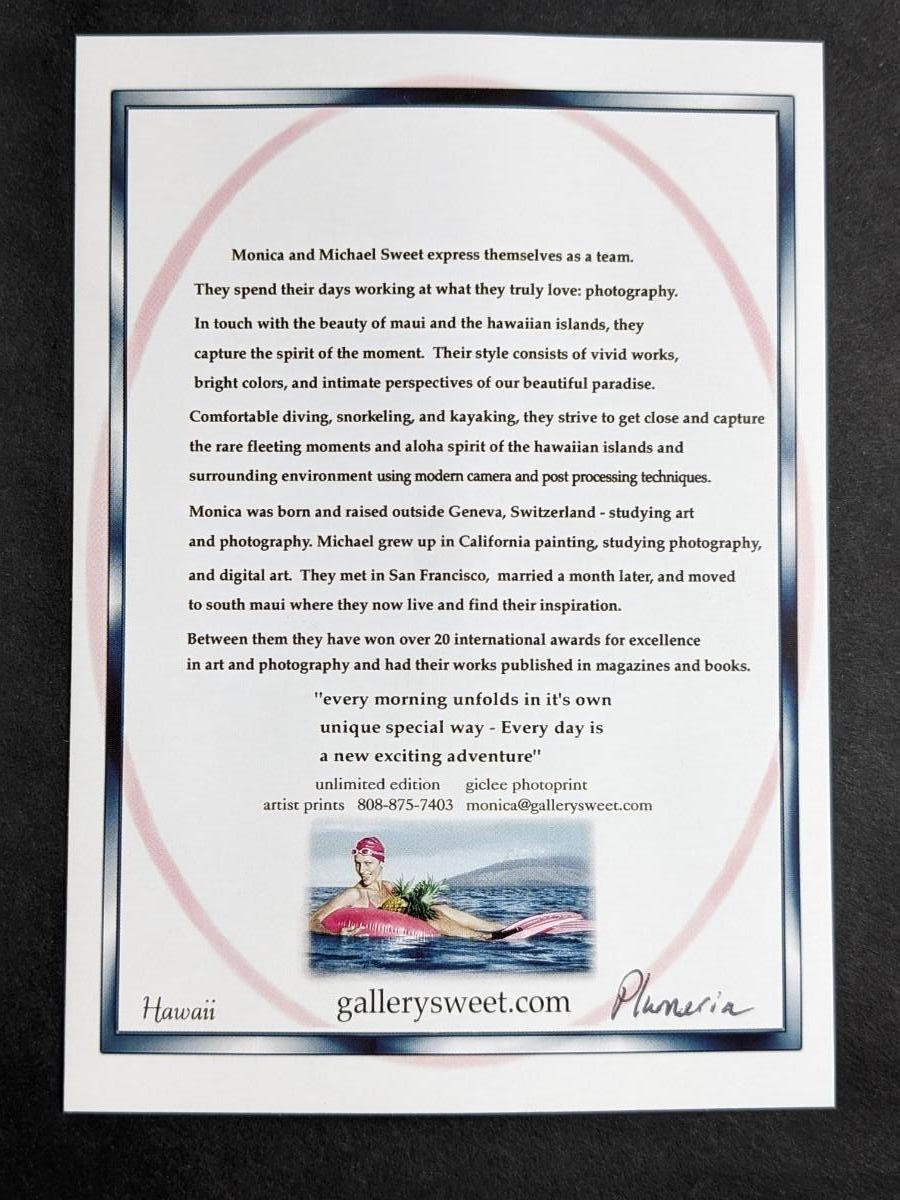 Monica and Michael Sweet express themselves as a team.
They spend their days working at what they truly love: photography.
In touch with the beauty of maui and the hawaiian islands, they
capture the spirit of the moment. Their style consists of vivid works,
bright colors, and intimate perspectives of our beautiful paradise.
Comfortable diving, snorkeling, and kayaking, they strive to get close and capture
the rare fleeting moments and aloha spirit of the hawaiian islands and
surrounding environment using modern camera and post processing techniques.
Monica was born and raised outside Geneva, Switzerland - studying art
and photography. Michael grew up in California painting, studying photography,
and digital art. They met in San Francisco, married a month later, and moved
to south maui where they now live and find their inspiration.
Between them they have won over 20 international awards for excellence
in art and photography and had their works published in magazines and books.
"every morning unfolds in it's own
unique special way - Every day is
a new exciting adventure"
unlimited edition giclee photoprint
artist prints 808-875-7403 monica@gallerysweet.com
Hawaii gallerysweet.com Plumeria